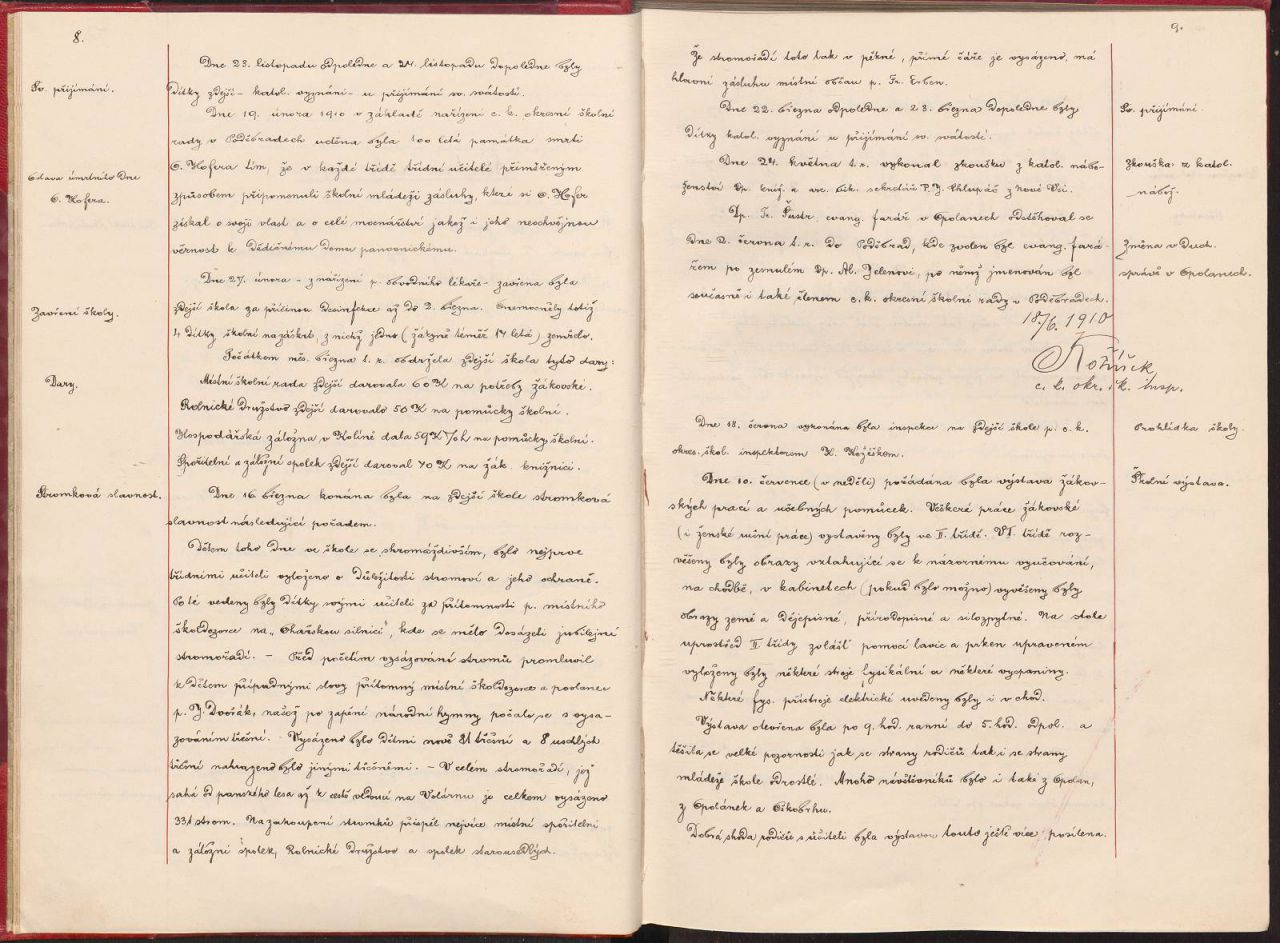 8.
Dne 23. listopadu odpoledne a 24. listopadu dopoledne byly
Sv. přijímání.
dítky zdejší - katol. vyznání - u přijímání sv. svátostí.
Dne 19. února 1910 v záhlastí nařízení c. k. okresní školní
rady v Poděbradech uděna byla 100 letá památka smrti
Oslava úmrtního dne
O. Hofera.
O. Hofera tím, že v každé třídě třídní učitelé přiměřeným
způsobem připomenuli školní mládeži zásluhy, které si O. Hofer
získal o svoji vlast a o celé mocnářství jakož i jeho neochvějnou
věrnost k dědičnému domu panovnickému.
Dne 27. února - z nařízení p. obvodního lékaře - zavřena byla
Zavření školy.
zdejší škola za příčinou desinfekce až do 2. března. Onemocněly totiž
4 dítky školní na záškrt, z nichž jedno (žákyně téměř 14 letá) zemřelo.
Počátkem měs. března t. r. obdržela zdejší škola tyto dary:
Dary.
Místní školní rada zdejší darovala 60 K na potřeby žákovské.
Rolnické družstvo zdejší darovalo 50 K na pomůcky školní.
Hospodářská záložna v Kolíně dala 59 K 70 h na pomůcky školní.
Spořitelní a záložní spolek zdejší daroval 40 K na žák. knižnici.
Stromková slavnost.
Dne 16. března konána byla na zdejší škole stromková
slavnost následující pořadem.
Dětem toho dne ve škole se shromáždivším, bylo nejprve
třídními učiteli vyloženo o důležitosti stromoví a jeho ochraně.
Poté vedeny byly dítky svými učiteli za přítomnosti p. místního
školdozorce na „Okařskou silnici", kde se mělo dosázeti jubilejní
stromořadí. - Před početím vysázování stromů promluvil
k dětem případnými slovy přítomný místní školdozorce a poslanec
p. J. Dvořák, načež po zapění národní hymny počalo se s vysa-
zováním třešní. - Vysázeno bylo dětmi nově 21 třešní a 8 uschlých
třešní nahrazeno bylo jinými třešněmi. - V celém stromořadí, jež
sahá od panského lesa až k cestě vedoucí na Volárnu je celkem vysázeno
331 strom. Na zakoupení stromků přispěl nejvíce místní spořitelní
a záložní spolek, Rolnické družstvo a spolek starousedlých.
9.
Že stromořadí toto tak v pěkné, přímé čáře je vysázeno, má
hlavní zásluhu místní občan p. Fr. Erben.
Dne 22. března odpoledne a 23. března dopoledne byly
Sv. přijímání.
dítky katol. vyznání u přijímání sv. svátostí.
Dne 24. května t. r. vykonal zkoušku z katol. nábo-
Zkouška z katol.
nábož.
ženství dp. kníž. a arc. bisk. sekretář P. J. Chlupáč z Nové Vsi.
Dp. Fr. Šustr, evang. farář v Opolanech odstěhoval se
dne 2. června t. r. do Poděbrad, kde zvolen byl evang. fará-
Změna v duch.
správě v Opolanech.
řem po zesnulém dp. Al. Jelenovi, po němž jmenován byl
současně i také členem c. k. okresní školní rady v Poděbradech.
18/6. 1910
Kožíšek
c. k. okr. šk. insp.
Dne 18. června vykonána byla inspekce na zdejší škole p. c. k.
Prohlídka školy.
okres. škol. inspektorem K. Kožíškem.
Dne 10. července (v neděli) pořádána byla výstava žákov-
Školní výstava.
ských prací a učebných pomůcek. Veškeré práce žákovské
(i ženské ruční práce) vystavěny byly ve II. třídě. V I. třídě roz-
věšeny byly obrazy vztahující se k názornému vyučování,
na chodbě, v kabinetech (pokud bylo možno) vyvěšeny byly
obrazy země a dějepisné, přírodopisné a silozpytné. Na stole
uprostřed II třídy zvlášť pomocí lavic a prken upraveném
vyloženy byly některé stroje fysikální a některé vycpaniny.
Některé fys. přístroje elektrické uvedeny byly i v chod.
Výstava otevřena byla po 9. hod. ranní do 5. hod. odpol. a
těšila se velké pozornosti jak se strany rodičů tak i se strany
mládeže škole odrostlé. Mnoho návštěvníků bylo i také z Opolan,
z Opolánek a Oškobrhu.
Dobrá shoda rodičů s učiteli byla výstavou touto ještě více posílena.